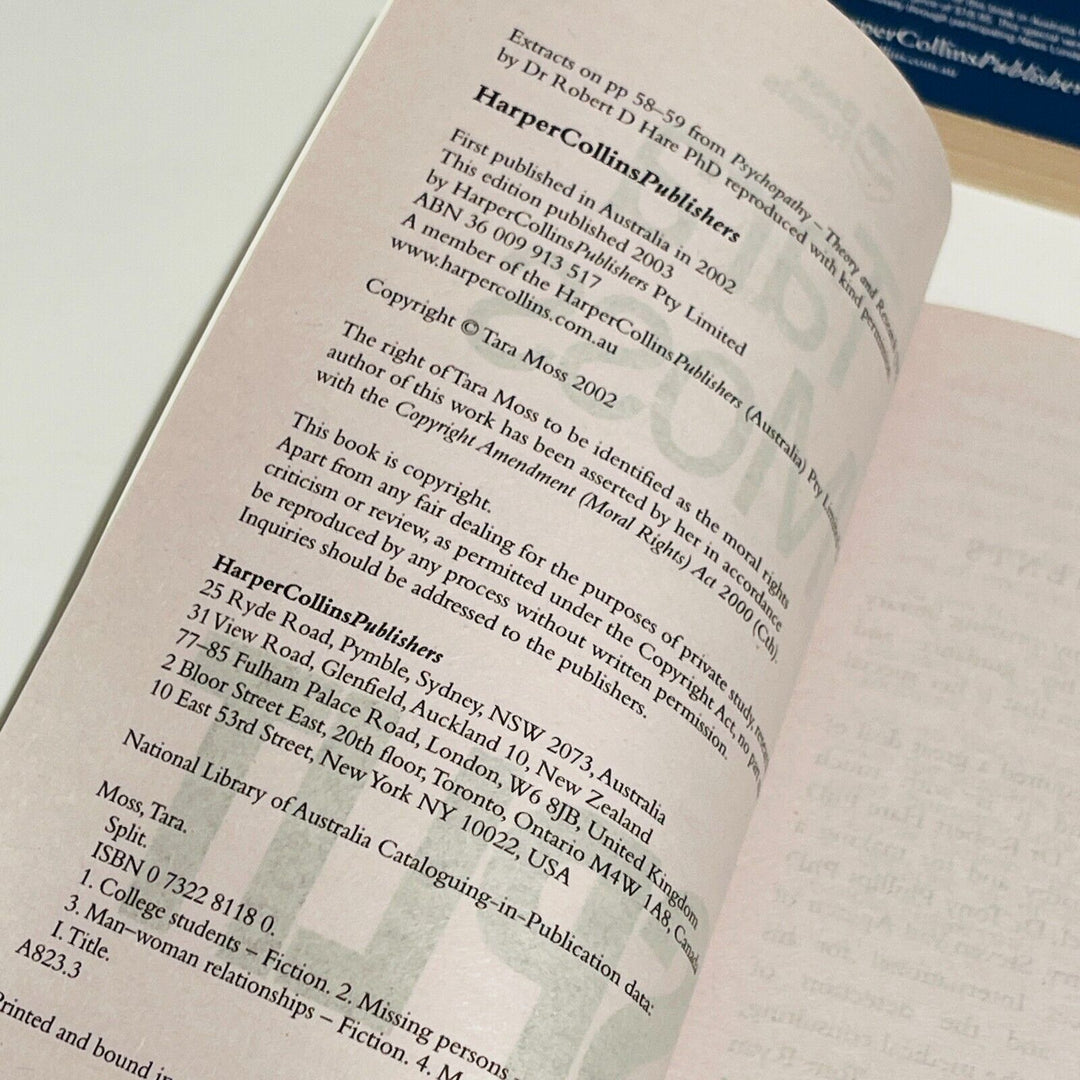 Extracts on pp 58–59 from Psychopathy – Theory and Research
by Dr Robert D Hare PhD reproduced with kind permission
HarperCollinsPublishers
First published in Australia in 2002
This edition published 2003
by HarperCollinsPublishers Pty Limited
ABN 36 009 913 517
A member of the HarperCollinsPublishers (Australia) Pty Limited
www.harpercollins.com.au
Copyright © Tara Moss 2002
The right of Tara Moss to be identified as the moral rights
author of this work has been asserted by her in accordance
with the Copyright Amendment (Moral Rights) Act 2000 (Cth).
This book is copyright.
Apart from any fair dealing for the purposes of private study,
criticism or review, as permitted under the Copyright Act, no part
be reproduced by any process without written permission.
Inquiries should be addressed to the publishers.
HarperCollinsPublishers
25 Ryde Road, Pymble, Sydney, NSW 2073, Australia
31 View Road, Glenfield, Auckland 10, New Zealand
77–85 Fulham Palace Road, London, W6 8JB, United Kingdom
2 Bloor Street East, 20th floor, Toronto, Ontario M4W 1A8, Canada
10 East 53rd Street, New York NY 10022, USA
National Library of Australia Cataloguing-in-Publication data:
Moss, Tara.
Split.
ISBN 0 7322 8118 0.
1. College students – Fiction. 2. Missing persons –
3. Man–woman relationships – Fiction. 4.
I. Title.
A823.3
Printed and bound in
HarperCollinsPublishers